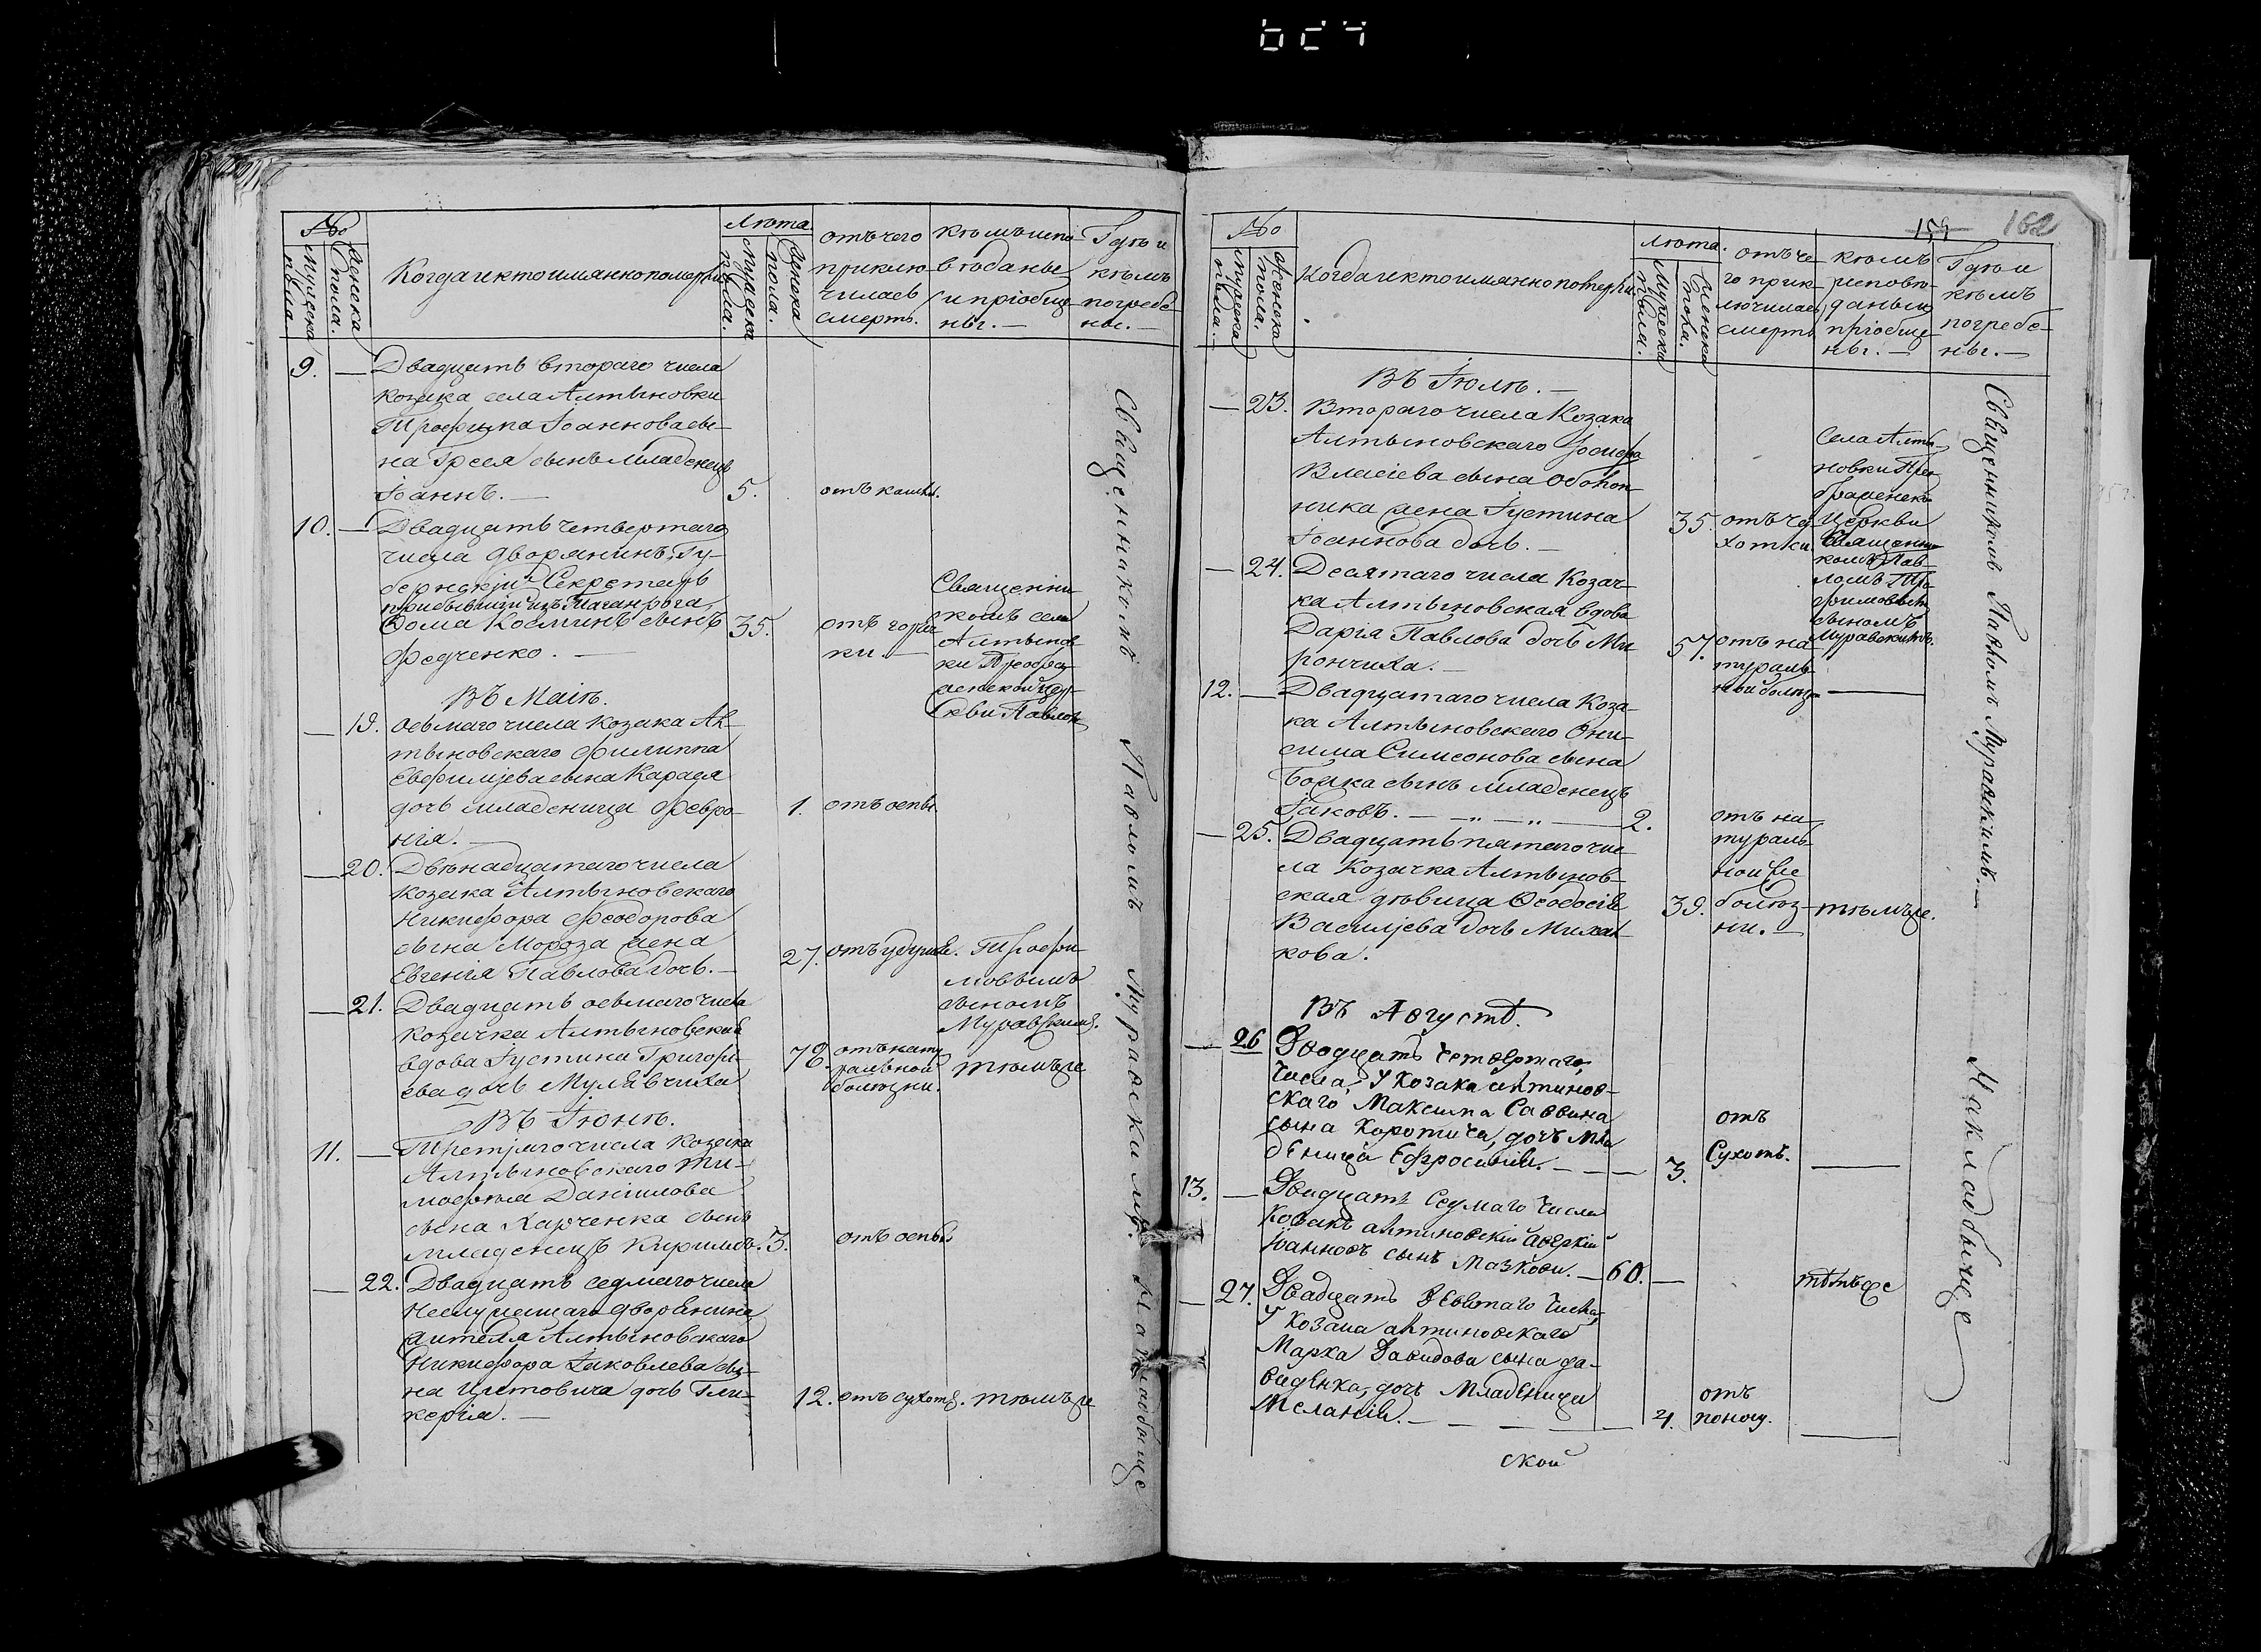 №
Мужеска пола.
Женска пола.
Когда и кто имянно померли
Лѣта
Мужеска пола.
Женска пола.
отъ чего
приклю-
чилась
смерть.
кѣмъ испо-
вѣданы
и пріобще-
ны. —
Гдѣ и
кѣмъ
погребе-
ны. —
9. — Двадцать втораго числа
козака села Алтыновки
Трофима Іоаннова сы-
на сынъ младенецъ
Іоаннъ. — 5. отъ кашлю.
10. — Двадцать четвертаго
числа дворянинъ, Гу-
бернскій Секретарь
прибывшій изъ Таганрога,
Ѳома Косминъ сынъ 35. отъ горяч-
Федченко. — ки. —
Священни-
комъ села
Алтынов-
ки Преобра-
женской цер-
кви Павлом
Въ Маіѣ.
— 19. Осьмаго числа козака Ал-
тыновскаго Филиппа
Евфиміева сына
дочь младеница Февро- 1. отъ оспы.
нія. —
— 20. Двѣнадцатаго числа
козака Алтыновскаго
Никифора Феодорова
сына Мороза жена
Евгенія Павлова дочь. — 27. отъ удушья. Трофи-
мовымъ
сыномъ
Муравскимъ.
— 21. Двадцать осьмаго числа
козачка Алтыновская
вдова Іустина Григорі-
ева дочь Мулявчиха 78. отъ нату-
ральной
болѣзни. тѣмъ же
Въ Іюнѣ.
11. — Третяго числа козака
Алтыновскаго Ти-
мофѣя Даніилова
сына Харченка сынъ
младенецъ Кириллъ. 3. отъ оспы
— 22. Двадцать седмаго числа
неслужащаго дворянина,
жителя Алтыновскаго
Никифора Іаковлева сы-
на дочь Гли- 12. отъ сухотъ. тѣмъ же
керія. —
Священникомъ Павломъ Муравскимъ. На кладбище
159 162
№
Мужеска пола.
Женска пола.
Когда и кто имянно померли.
Лѣта.
Мужеска пола.
Женска пола.
отъ че-
го прик-
лючилась
смерть
кѣмъ
исповѣ-
даны и
пріобще-
ны. —
Гдѣ и
кѣмъ
погребе-
ны. —
Въ Іюлѣ. —
— 23. Втораго числа козака
Алтыновскаго Іосифа
Власіева сына
жена Іустина
Іоаннова дочь. — 35. отъ ча-
хотки
Села Алты-
новки Прео-
браженской
церкви
Священни-
комъ Пав-
ломъ Тро-
фимовым
сыномъ
Муравскимъ.
— 24. Десятаго числа козач-
ка Алтыновская вдова
Дарія Павлова дочь Ми-
рончиха. — 57. отъ на-
тураль-
ной болѣзн —
12. — Двадцатаго числа коза-
ка Алтыновскаго Они-
сима Симеонова сына
Бойка сынъ младенецъ
Іаковъ. — „ — „ — 2. отъ на-
тураль-
ной же
болѣз-
ни. —
— 25. Двадцать пятаго чис-
ла козачка Алтынов-
ская дѣвица Ѳеодосія 39. тѣмъ же.
Василіева дочь Михал-
кова.
Въ Августѣ.
— 26 Двадцать четвертаго,
числа, у козака алтинов-
скаго Максима Саввина
сына Коротича, дочь мла
деница Ефросинія. — — 3. отъ
Сухотъ. —
13. — Двадцать Седмаго числа
козакъ алтиновскій Аверкій
Іоанновъ сынъ — 60. — тѣмъ же
— 27. Двадцать девятаго числа,
у козака алтиновскаго
Марка Давидова сына Да-
виденка, дочь младеница
Меланія. — — — — 4. отъ
поносу. —
ской
Священникомъ Павломъ Муравскимъ. — На кладбище